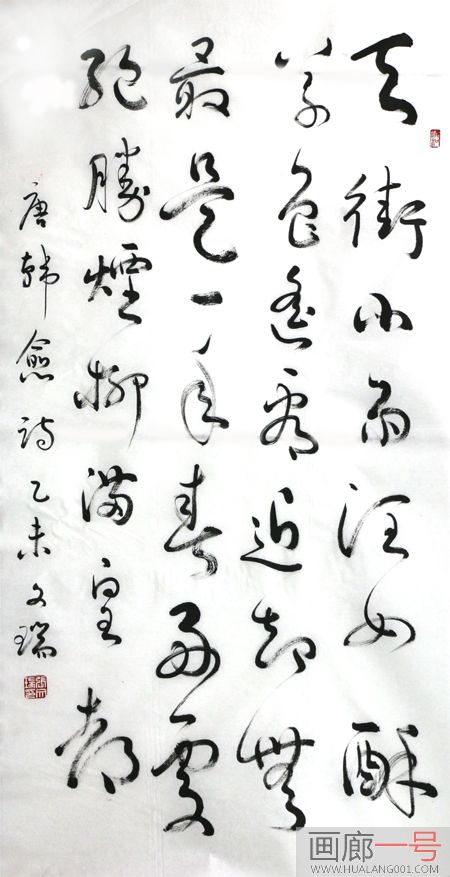 天街小雨潤如酥
草色遙看近卻無
最是一年春好處
絕勝煙柳滿皇都
唐韓愈詩乙未文瑞
画廊一号
WWW.HUALANG001.COM